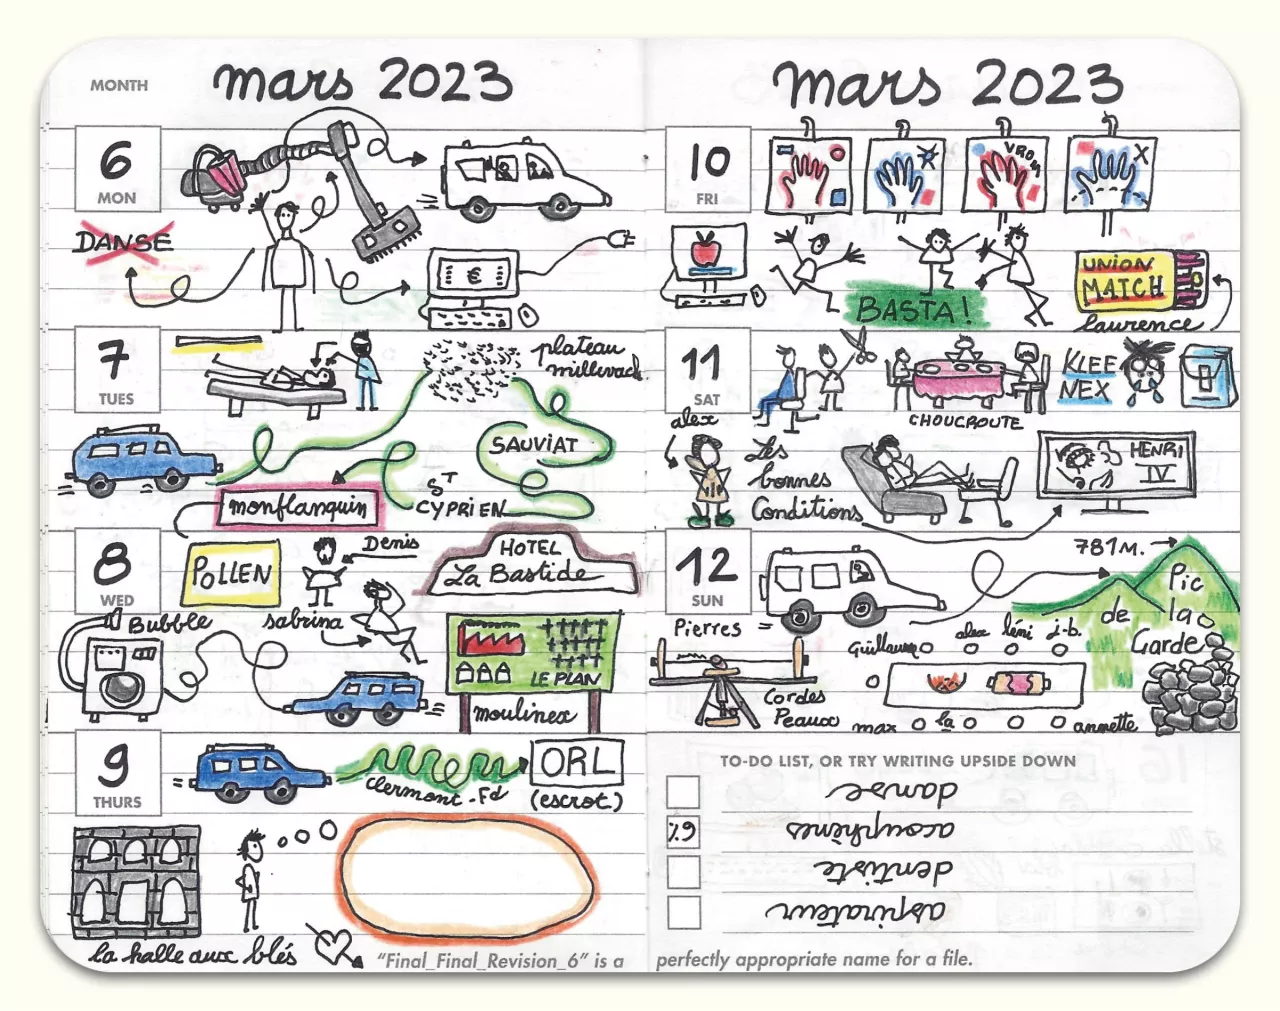 MONTH
mars 2023
6
MON
DANSE
€
7
TUES
plateau
millevach
SAUVIAT
ST
CYPRIEN
monflanquin
8
WED
POLLEN
Denis
HOTEL
La Bastide
Bubble
sabrina
LE PLAN
moulinex
9
THURS
Clermont-Fd
ORL
(escrot.)
la halle aux blés
"Final_Final_Revision_6" is a
mars 2023
10
FRI
VROM
X
BASTA!
UNION
MATCH
laurence
11
SAT
CHOUCROUTE
KLEE
NEX
alex
Les
bonnes
Conditions
HENRI
IV
12
SUN
781M.
Pic
de
la
Garde
Pierres
Cordes
Peaux
Guillaume
alex
léni
j-b.
max
la
annette
TO-DO LIST, OR TRY WRITING UPSIDE DOWN
danse
acouphènes
dentiste
aspirateur
perfectly appropriate name for a file.